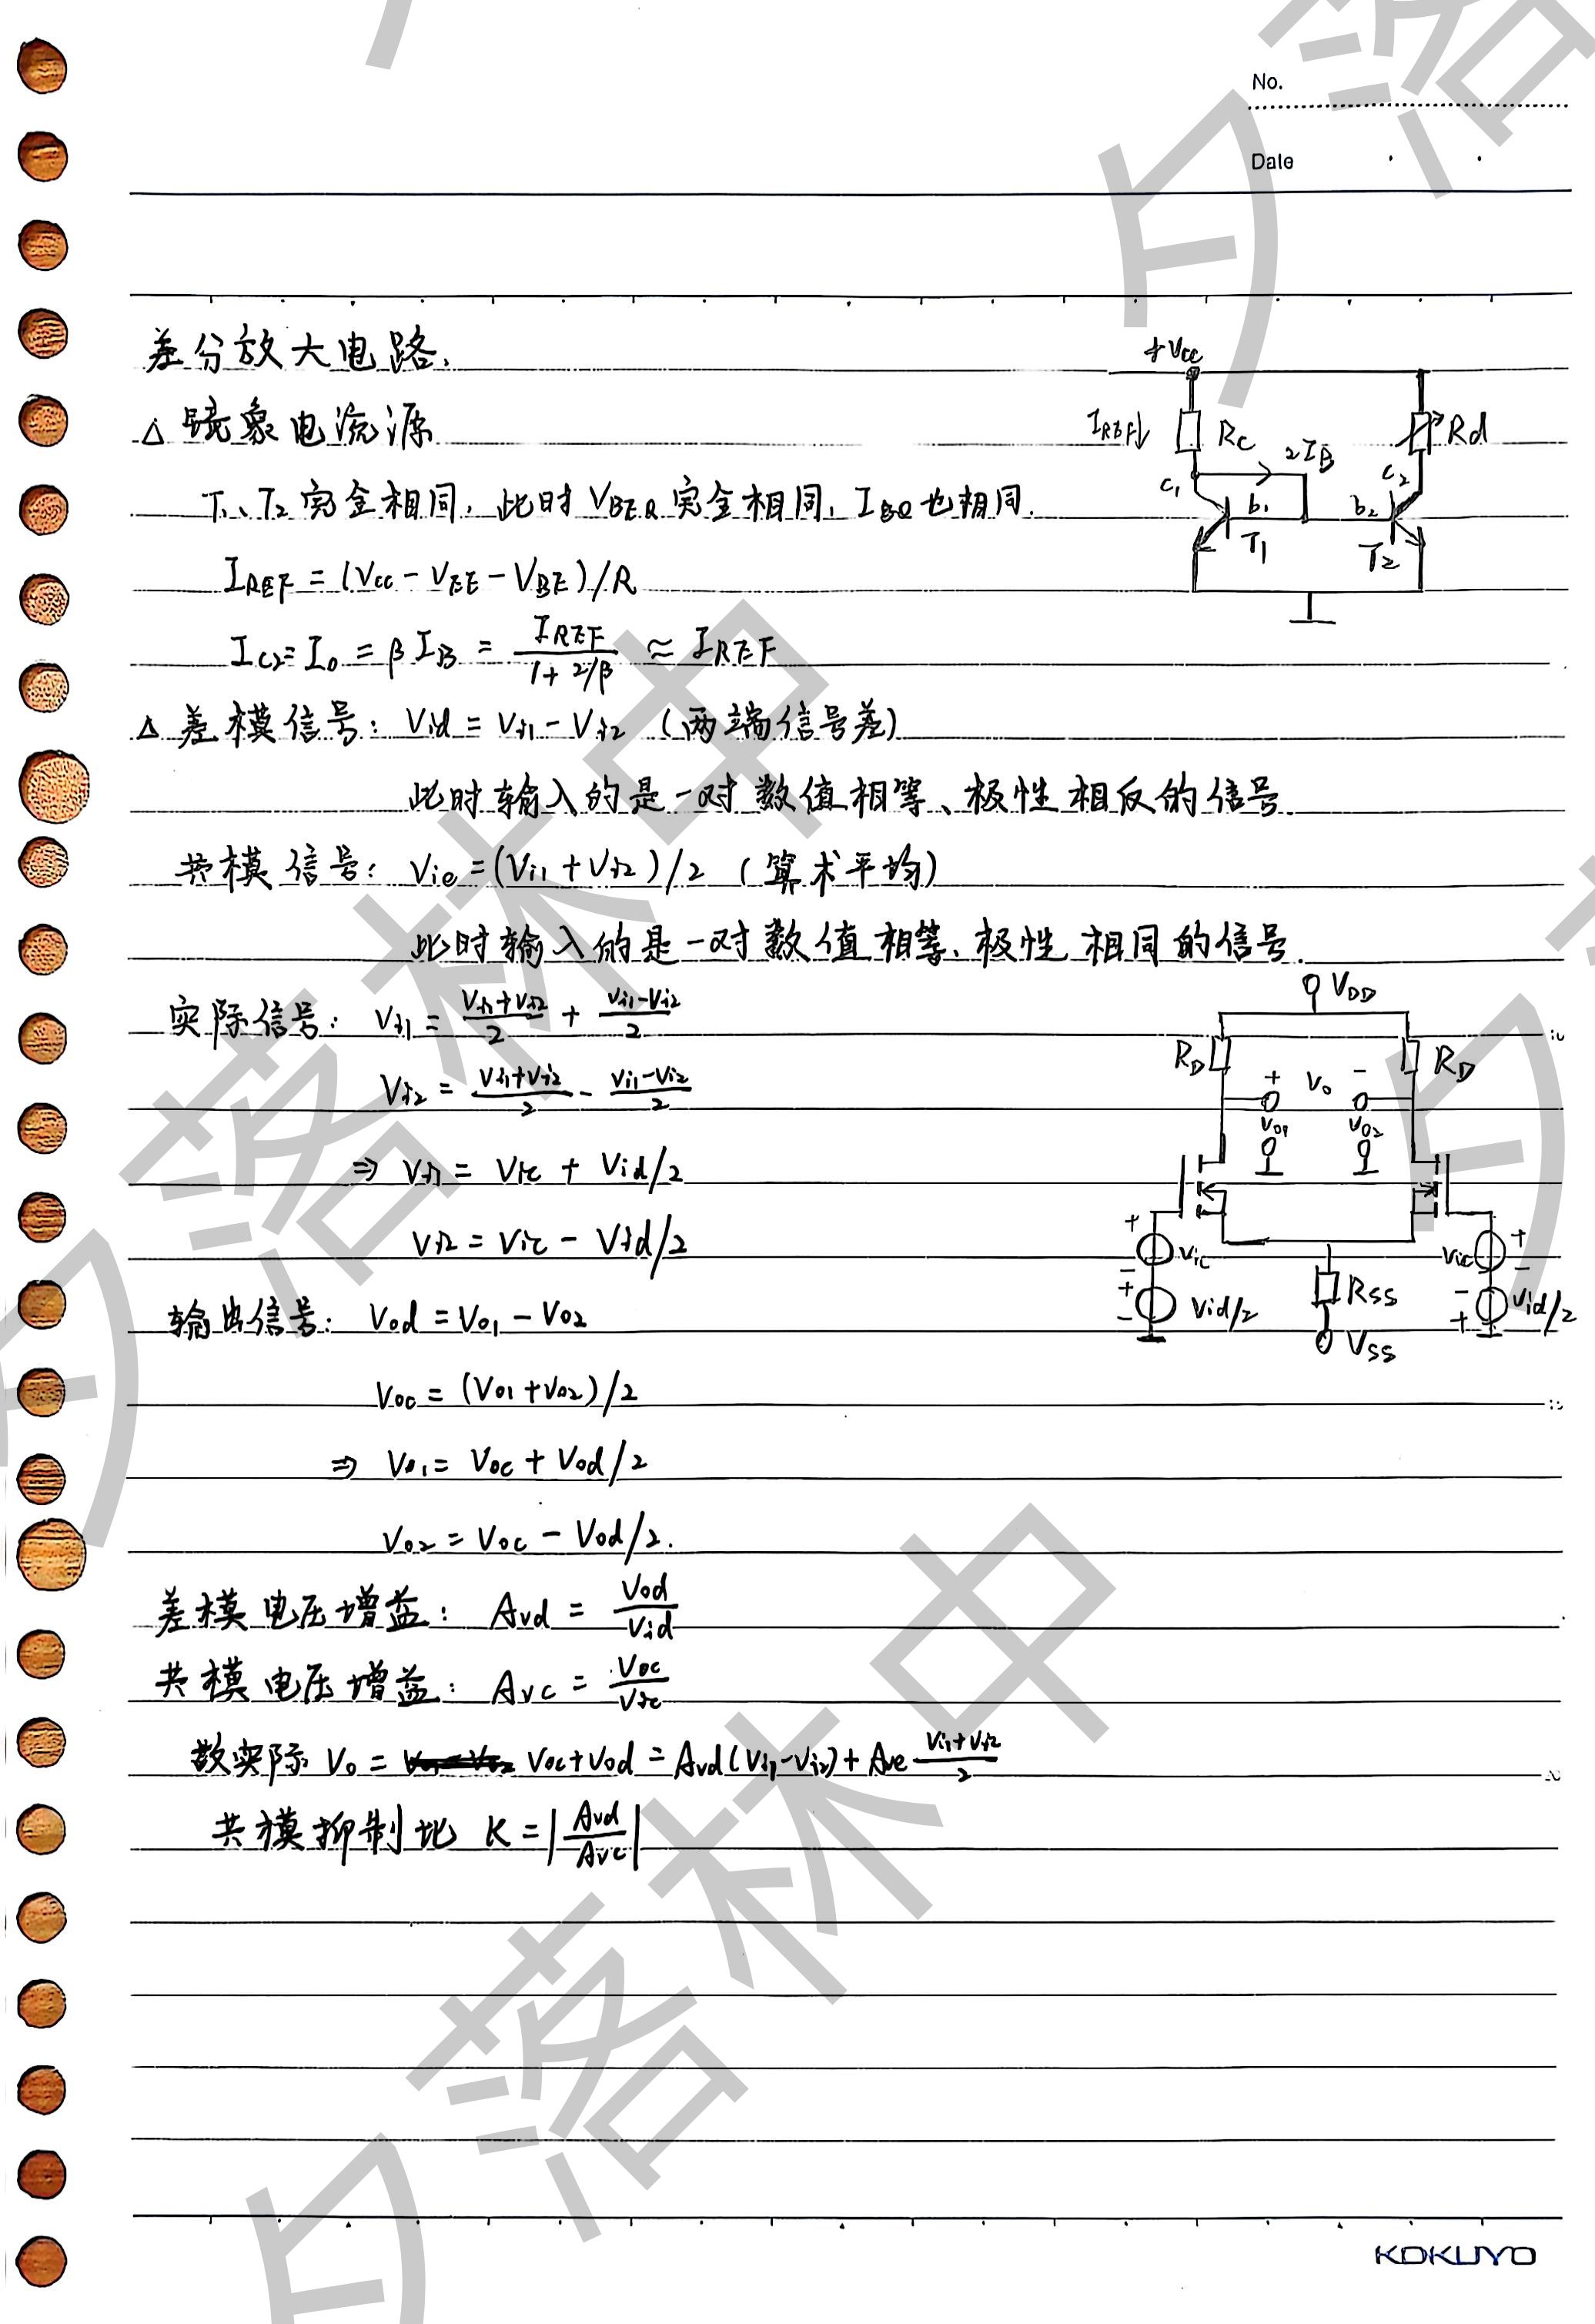 No.
Date
差分放大电路.
△ 镜象电流源
T₁、T₂完全相同, 此时 V_BEQ 完全相同, I_BQ 也相同.
I_REF = (V_CC - V_EE - V_BE)/R
I_C2 = I_0 = βI_B = I_REF/(1+2/β) ≈ I_REF
+Vcc
I_REF↓ Rc 2I_B Rd
c₁ b₁ b₂ c₂
T₁ T₂
△ 差模信号: Vid = Vi1 - Vi2 (两端信号差)
此时输入的是一对数值相等、极性相反的信号.
共模信号: Vic = (Vi1 + Vi2)/2 (算术平均)
此时输入的是一对数值相等、极性相同的信号.
实际信号: Vi1 = (Vi1+Vi2)/2 + (Vi1-Vi2)/2
Vi2 = (Vi1+Vi2)/2 - (Vi1-Vi2)/2
⇒ Vi1 = Vic + Vid/2
Vi2 = Vic - Vid/2
V_DD
R_D R_D
+ Vo -
Vo1 Vo2
+ Vic - Vic + -
+ Vid/2 - Rss - Vid/2 +
Vss
输出信号: Vod = Vo1 - Vo2
Voc = (Vo1 + Vo2)/2
⇒ Vo1 = Voc + Vod/2
Vo2 = Voc - Vod/2.
差模电压增益: Avd = Vod/Vid
共模电压增益: Avc = Voc/Vic
故实际 Vo = Voc + Vod = Avd(Vi1-Vi2) + Avc (Vi1+Vi2)/2
共模抑制比 K = |Avd/Avc|
KOKUYO
夕落林中
夕落林中